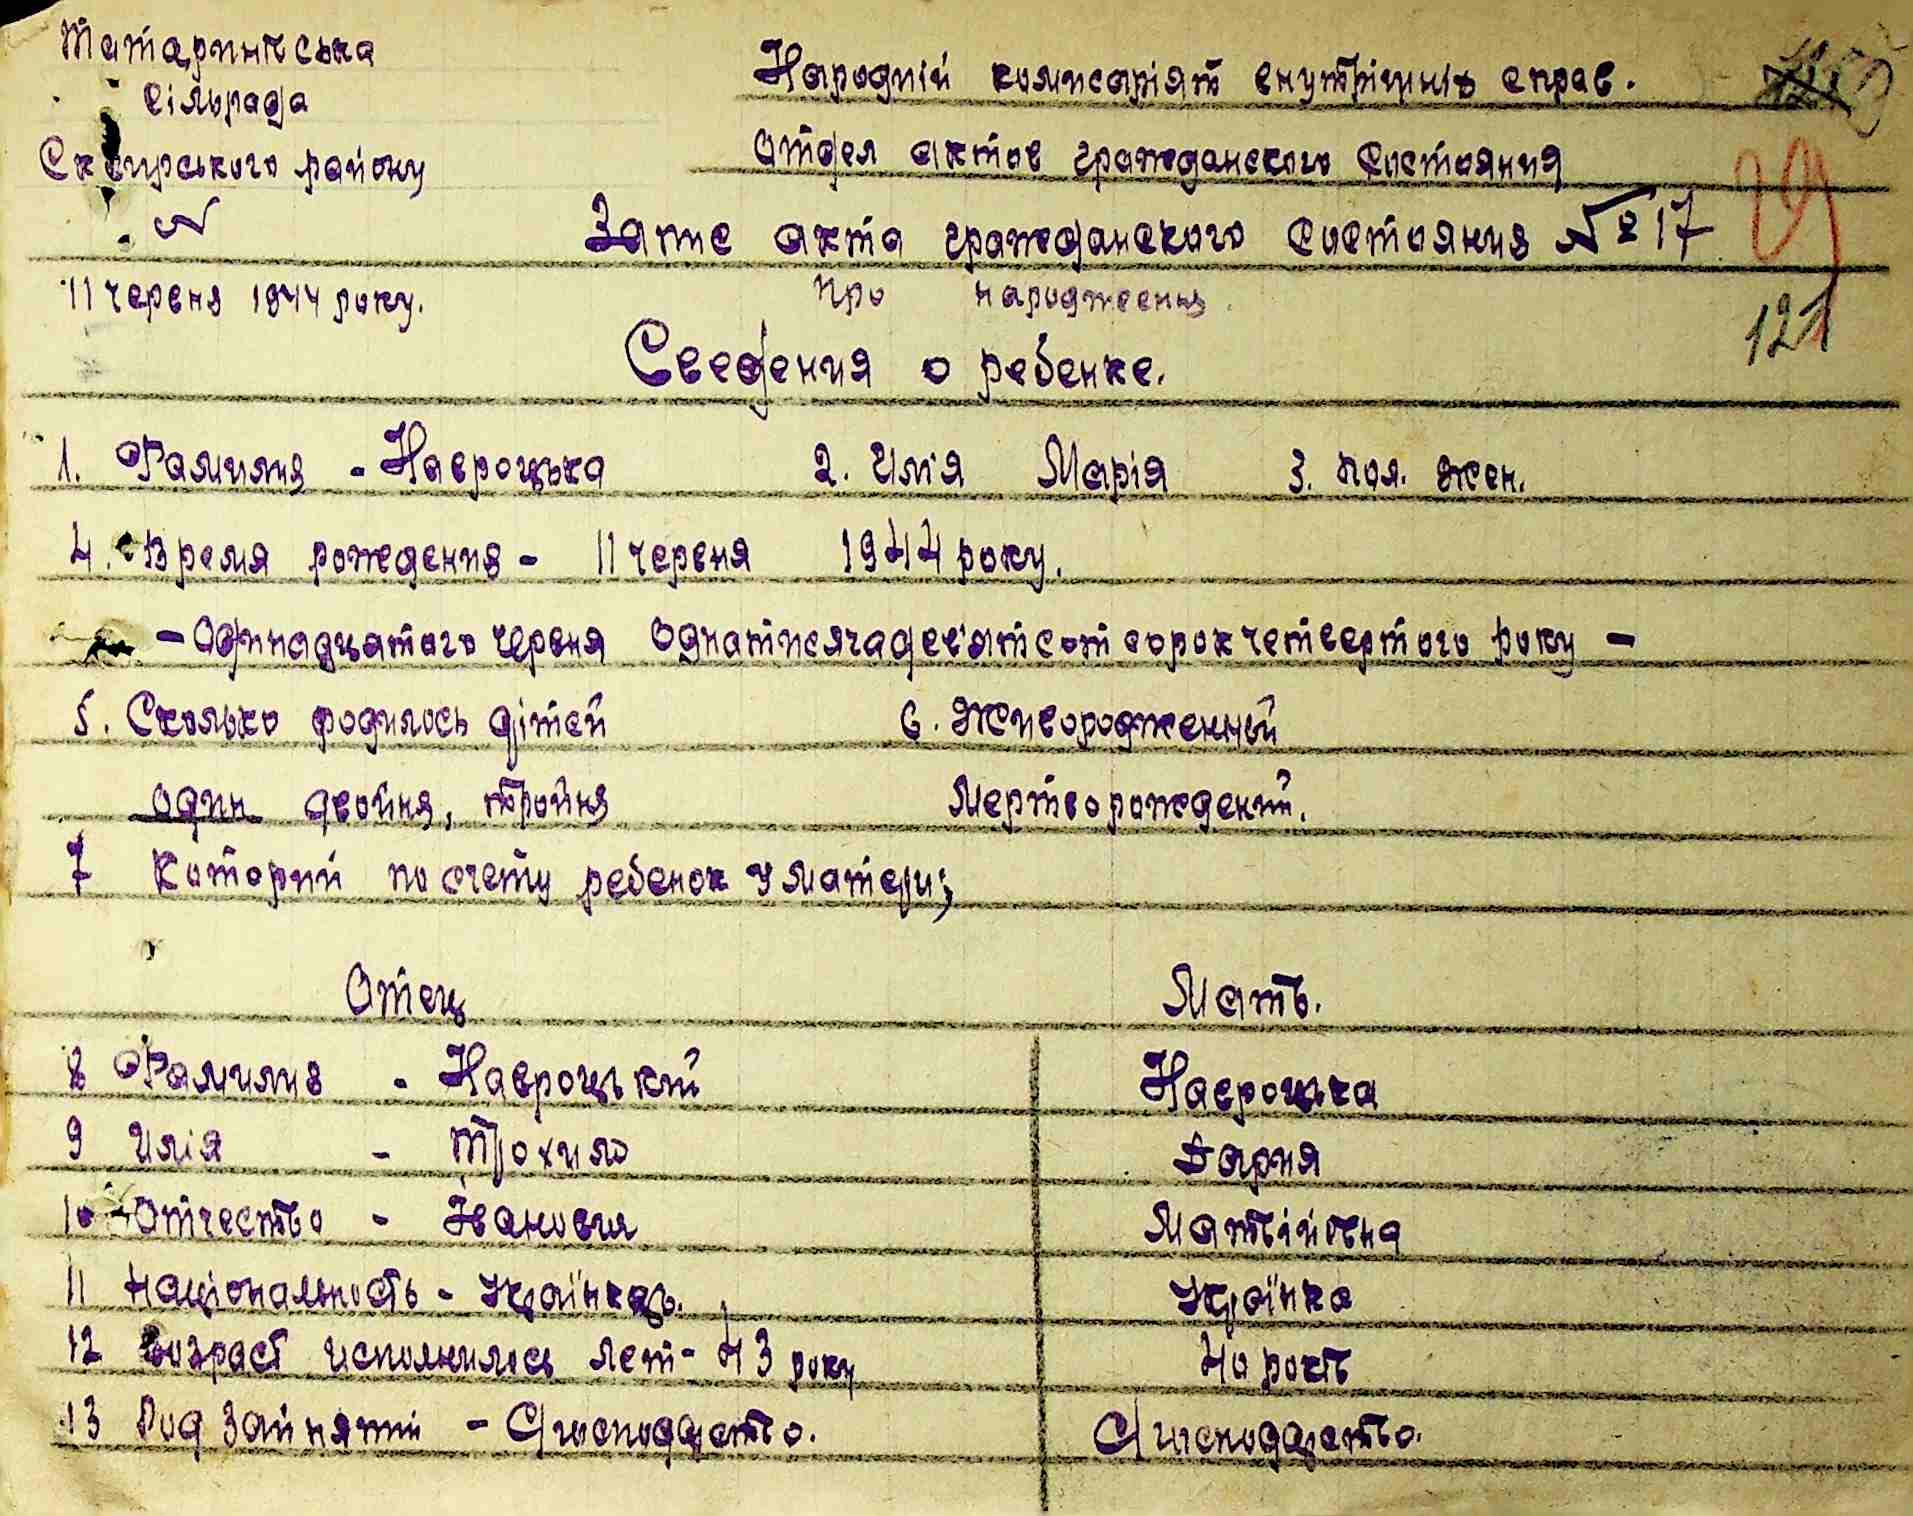 Татаринівська
сільрада
Сквирського району
№
11 червня 1944 року.
Народній комисаріят внутрішніх справ.
Отдел актов гражданского состояния
Запис акта гражданского состояния № 17
про народження.
29
121
Сведения о ребенке.
1. Фамилия - Навроцька 2. Имія Марія 3. пол. жен.
4. Время рождения - 11 червня 1944 року.
- Одинадцатого червня однатисячадев'ятсот сорок четвертого року -
5. Сколько родилось дітей 6. Живородженный
один двойня, тройня Мертворожденій.
7 Которий по счету ребенок у матери;
Отец Мать.
8 Фамилия - Навроцький Навроцька
9 Имія - Трохим Дария
10 Отчество - Іванович Матвіївна
11 Національность - Українець. Українка
12 Возраст исполнилось лет - 43 року 40 років
13 Род Зайнятий - С/господарство. С/господарство.